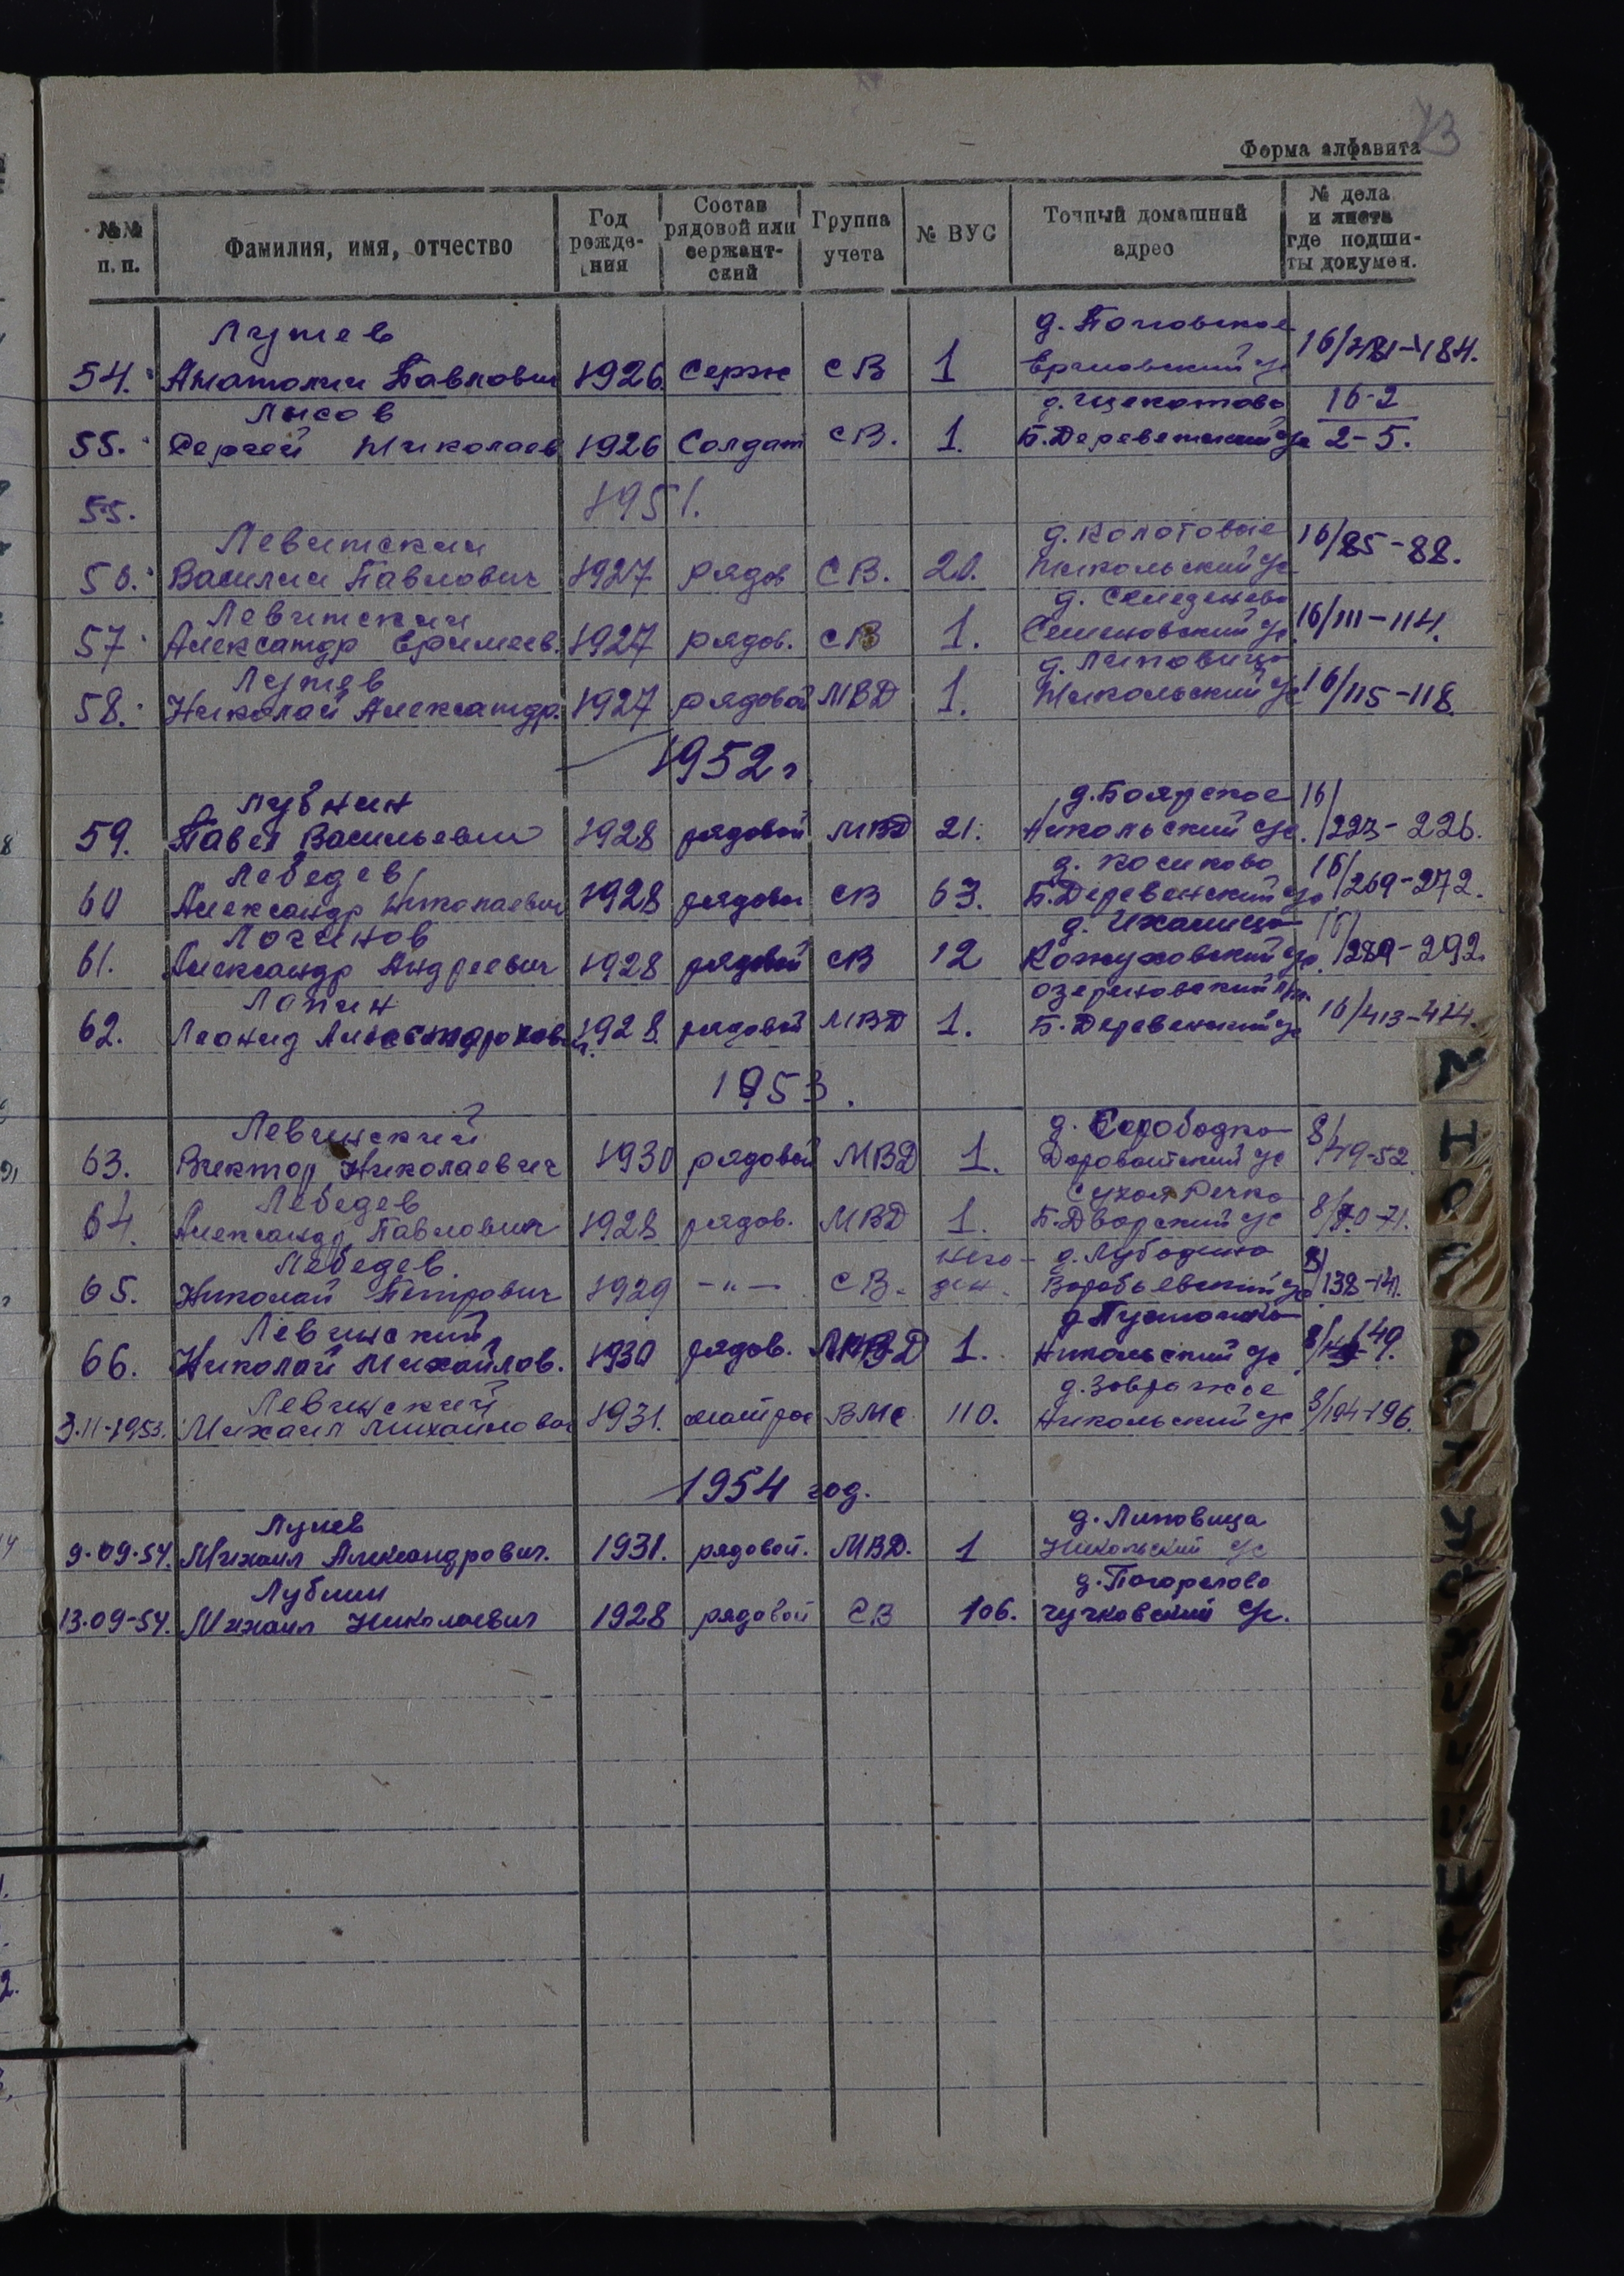 73
Форма алфавита
№№ п. п. Фамилия, имя, отчество Год рожде-ния Состав рядовой или сержант-ский Группа учета № ВУС Точный домашний адрес № дела и листа где подши-ты докумен.
Лунев д.
54. Анатолий Павлович 1926 Серж СВ 1 16/181-184.
Лысов д. Щекотово 16-2
55. Сергей Николаев 1926 Солдат СВ. 1. Б.Деревенский с/с 2-5.
55. 1951.
Левитский д. Колотовые
56. Василий Павлович 1927 рядов СВ. 20. Никольский с/с 16/85-88.
Левитский д.
57. Александр Еримеев. 1927 рядов. СВ 1. Семеновский с/с 16/111-114.
Лунев д. Липовица
58. Николай Александр. 1927 рядовой МВД 1. Никольский с/с 16/115-118.
1952г
Лубнин д. Боярское 16/
59. Павел Васильевич 1928 рядовой МВД 21. Никольский с/с. /223-226.
Лебедев д. Косиково 16/
60 Александр Николаевич 1928 рядовой СВ 63. Б.Деревенский с/с /269-272.
Логинов д. 16/
61. Александр Андреевич 1928 рядовой СВ 12 Кожуховский с/с. /289-292.
Лапин Озерновский
62. Леонид Александрович. 1928. рядовой МВД 1. Б.Деревенский с/с 16/413-414.
1953.
Левинский д. 8/
63. Виктор Николаевич 1930 рядовой МВД 1. Дороватский с/с /49-52
Лебедев Сухая Речка
64. Александр Павлович 1928 рядов. МВД 1. Б.Дворский с/с 8/70-71.
Лебедев. него- д. Лубодино 8/
65. Николай Петрович 1929 -"- СВ. ден. Воробьевский с/с /138-141.
Левинский д.
66. Николай Михайлов. 1930 рядов. МВД 1. Никольский с/с 8/
Левинский д. Завражое
3.11-1953. Михаил Михайлович 1931. матрос ВМС 110. Никольский с/с 8/194-196.
1954 год.
Лунев д. Липовица
9.09.54. Михаил Александрович. 1931. рядовой. МВД. 1 Никольский с/с
Лубнин д. Погорелово
13.09-54. Михаил Николаевич 1928 рядовой СВ 106. Чучковский с/с.